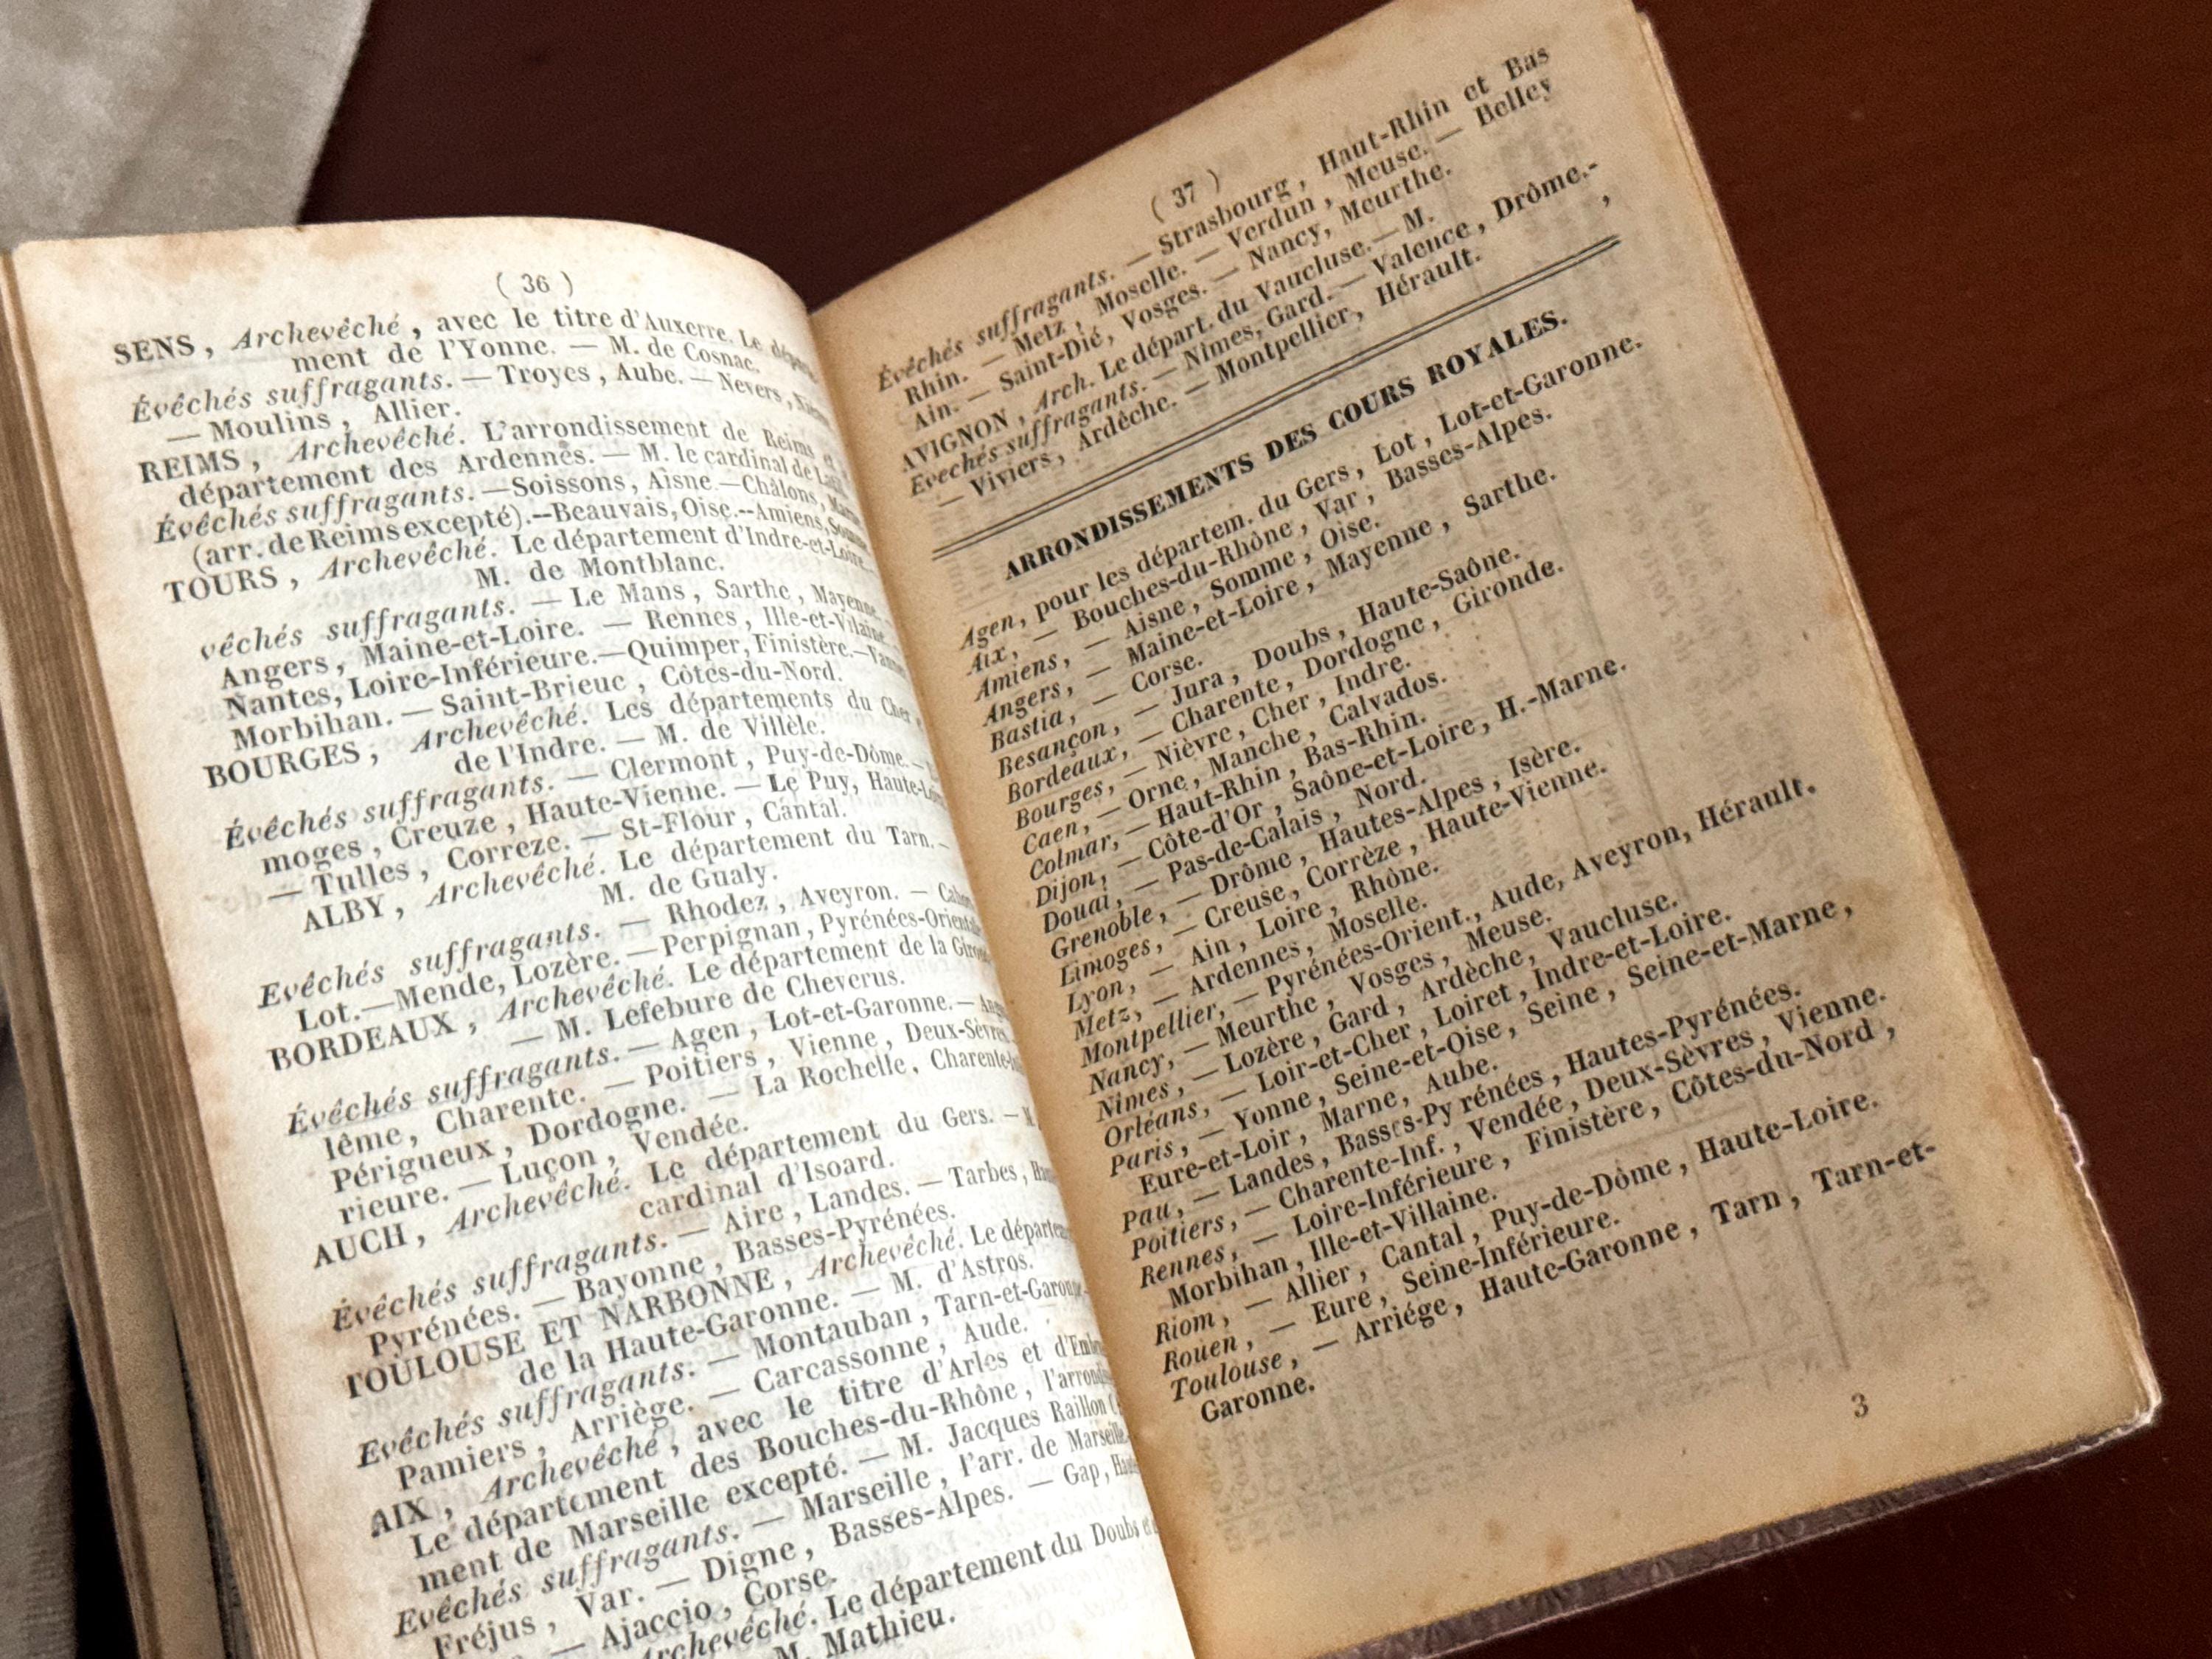 ( 36 )
SENS , Archevêché , avec le titre d'Auxerre. Le
ment de l'Yonne. — M. de Cosnac.
Évêchés suffragants. — Troyes , Aube. — Nevers ,
— Moulins , Allier.
REIMS , Archevêché. L'arrondissement de Reims
département des Ardennes. — M. le cardinal de
Évêchés suffragants. — Soissons , Aisne. — Châlons ,
(arr. de Reims excepté). -- Beauvais, Oise. -- Amiens,
TOURS , Archevêché. Le département d'Indre-et-Loire.
M. de Montblanc.
vêchés suffragants. — Le Mans , Sarthe , Mayenne.
Angers , Maine-et-Loire. — Rennes , Ille-et-Vilaine.
Nantes, Loire-Inférieure. — Quimper, Finistère. —
Morbihan. — Saint-Brieuc , Côtes-du-Nord.
BOURGES , Archevêché. Les départements du Cher
de l'Indre. — M. de Villèle.
Évêchés suffragants. — Clermont , Puy-de-Dôme. —
moges , Creuze , Haute-Vienne. — Le Puy,
— Tulles , Correze. — St-Flour , Cantal.
ALBY , Archevêché. Le département du Tarn. —
M. de Gualy.
Evêchés suffragants. — Rhodez , Aveyron. —
Lot. — Mende, Lozère. — Perpignan ,
BORDEAUX , Archevêché. Le département de la
— M. Lefebure de Cheverus.
Évêchés suffragants. — Agen , Lot-et-Garonne. —
lême , Charente. — Poitiers , Vienne , Deux-Sèvres.
Périgueux , Dordogne. — La Rochelle ,
rieure. — Luçon , Vendée.
AUCH , Archevêché. Le département du Gers. —
cardinal d'Isoard.
Évêchés suffragants. — Aire , Landes. — Tarbes ,
Pyrénées. — Bayonne , Basses-Pyrénées.
TOULOUSE ET NARBONNE , Archevêché. Le
de la Haute-Garonne. — M. d'Astros.
Evêchés suffragants. — Montauban , Tarn-et-Garonne.
Pamiers , Arriège. — Carcassonne , Aude.
AIX , Archevêché , avec le titre d'Arles et
Le département des Bouches-du-Rhône ,
ment de Marseille excepté. — M. Jacques Raillon
Evêchés suffragants. — Marseille , l'arr. de Marseille.
Fréjus , Var. — Digne , Basses-Alpes. — Gap ,
— Ajaccio , Corse.
Archevêché. Le département du Doubs
M. Mathieu.
( 37 )
Évêchés suffragants. — Strasbourg , Haut-Rhin et Bas
Rhin. — Metz , Moselle. — Verdun , Meuse. — Belley
Ain. — Saint-Dié , Vosges. — Nancy, Meurthe.
AVIGNON , Arch. Le départ. du Vaucluse. — M. ,
Evechés suffragants. — Nîmes, Gard. — Valence , Drôme.-
— Viviers , Ardêche. — Montpellier , Hérault.
ARRONDISSEMENTS DES COURS ROYALES.
Agen, pour les départem. du Gers , Lot , Lot-et-Garonne.
Aix, — Bouches-du-Rhône , Var , Basses-Alpes.
Amiens, — Aisne , Somme , Oise.
Angers, — Maine-et-Loire , Mayenne , Sarthe.
Bastia, — Corse.
Besançon, — Jura , Doubs , Haute-Saône.
Bordeaux, — Charente , Dordogne , Gironde.
Bourges, — Nièvre , Cher , Indre.
Caen, — Orne , Manche , Calvados.
Colmar, — Haut-Rhin , Bas-Rhin.
Dijon, — Côte-d'Or , Saône-et-Loire , H.-Marne.
Douai, — Pas-de-Calais , Nord.
Grenoble, — Drôme , Hautes-Alpes , Isère.
Limoges, — Creuse , Corrèze , Haute-Vienne.
Lyon, — Ain , Loire , Rhône.
Metz, — Ardennes , Moselle.
Montpellier, — Pyrénées-Orient., Aude, Aveyron, Hérault.
Nancy, — Meurthe , Vosges , Meuse.
Nîmes, — Lozère , Gard , Ardèche , Vaucluse.
Orléans, — Loir-et-Cher , Loiret , Indre-et-Loire.
Paris, — Yonne , Seine-et-Oise , Seine , Seine-et-Marne ,
Eure-et-Loir , Marne , Aube.
Pau, — Landes , Basses-Py rénées , Hautes-Pyrénées.
Poitiers, — Charente-Inf. , Vendée , Deux-Sèvres , Vienne.
Rennes, — Loire-Inférieure , Finistère , Côtes-du-Nord ,
Morbihan , Ille-et-Villaine.
Riom, — Allier , Cantal , Puy-de-Dôme , Haute-Loire.
Rouen, — Eure , Seine-Inférieure.
Toulouse , — Arriége , Haute-Garonne , Tarn , Tarn-et-
Garonne.
3